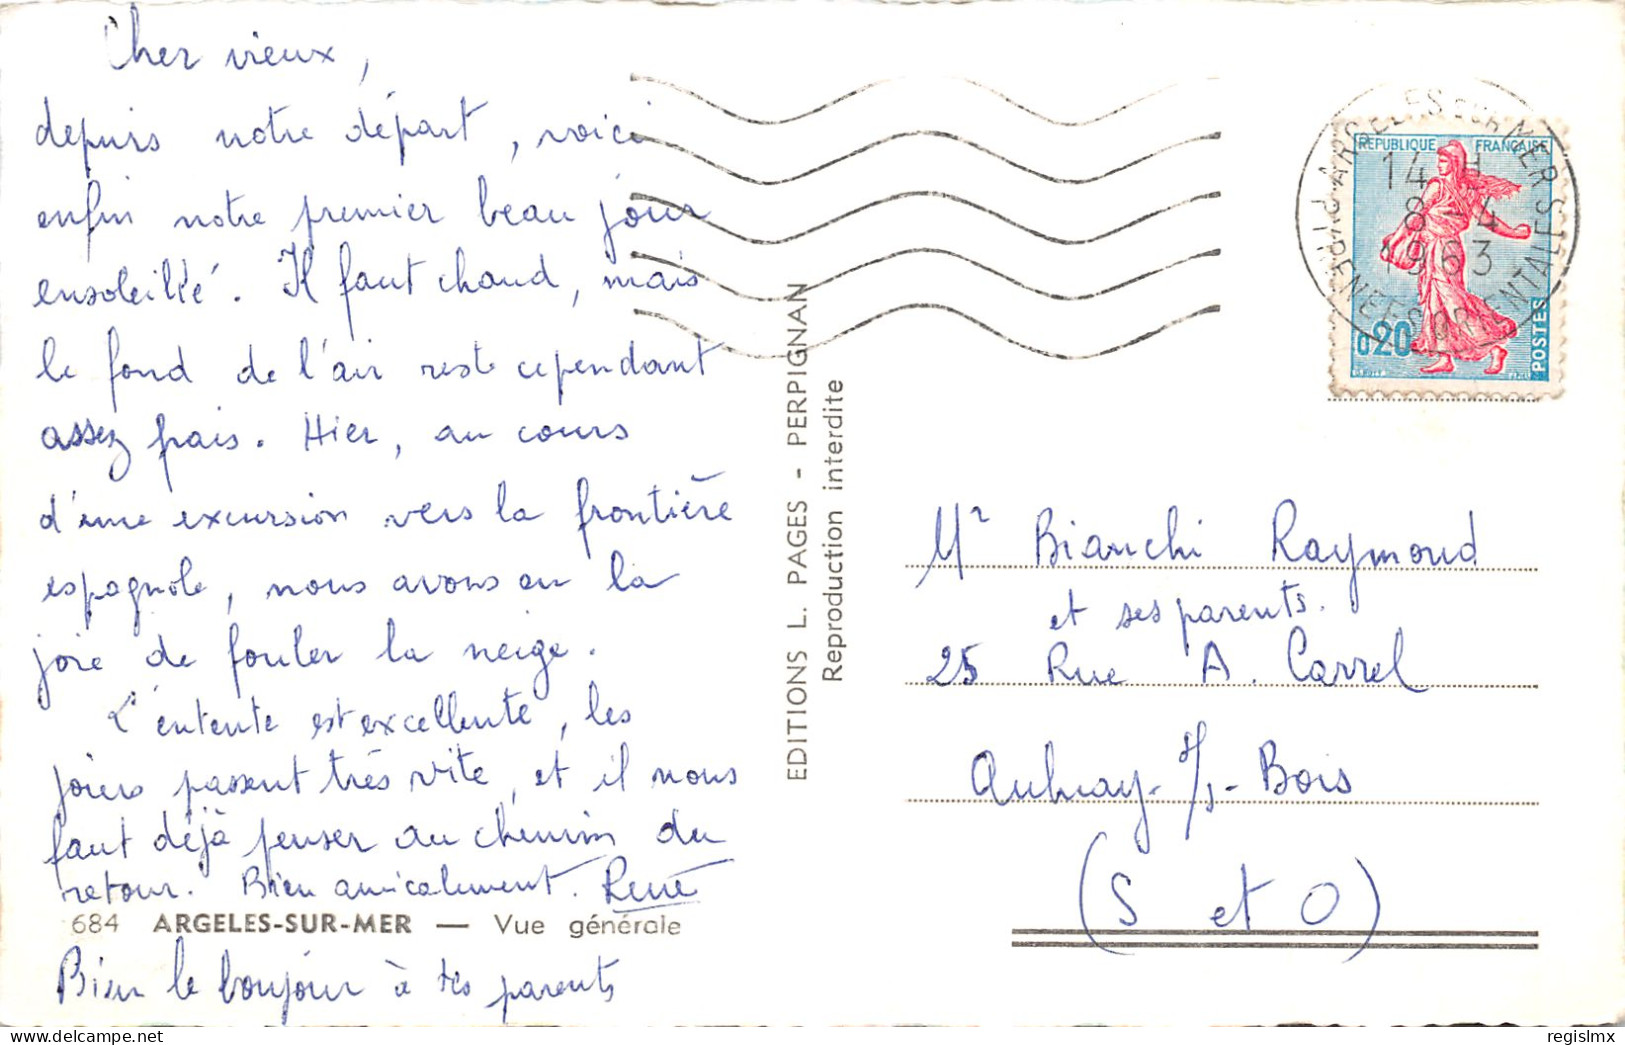 Cher vieux,
depuis notre départ, voici
enfin notre premier beau jour
ensoleillé. Il faut chaud, mais
le fond de l'air reste cependant
assez frais. Hier, au cours
d'une excursion vers la frontière
espagnole, nous avons eu la
joie de fouler la neige.
L'entente est excellente, les
jours passent très vite, et il nous
faut déjà penser au chemin du
retour. Bien amicalement. René
684 ARGELES-SUR-MER — Vue générale
Bien le bonjour à tes parents
EDITIONS L. PAGES - PERPIGNAN
Reproduction interdite
ARGELES SUR MER
PYRENEES-ORIENTALES
14 H
8-4
1963
REPUBLIQUE FRANÇAISE
0,20
POSTES
Mr Bianchi Raymond
et ses parents.
25 Rue A. Carrel
Aulnay-s/s-Bois
(S et O)
delcampe.net
regislmx